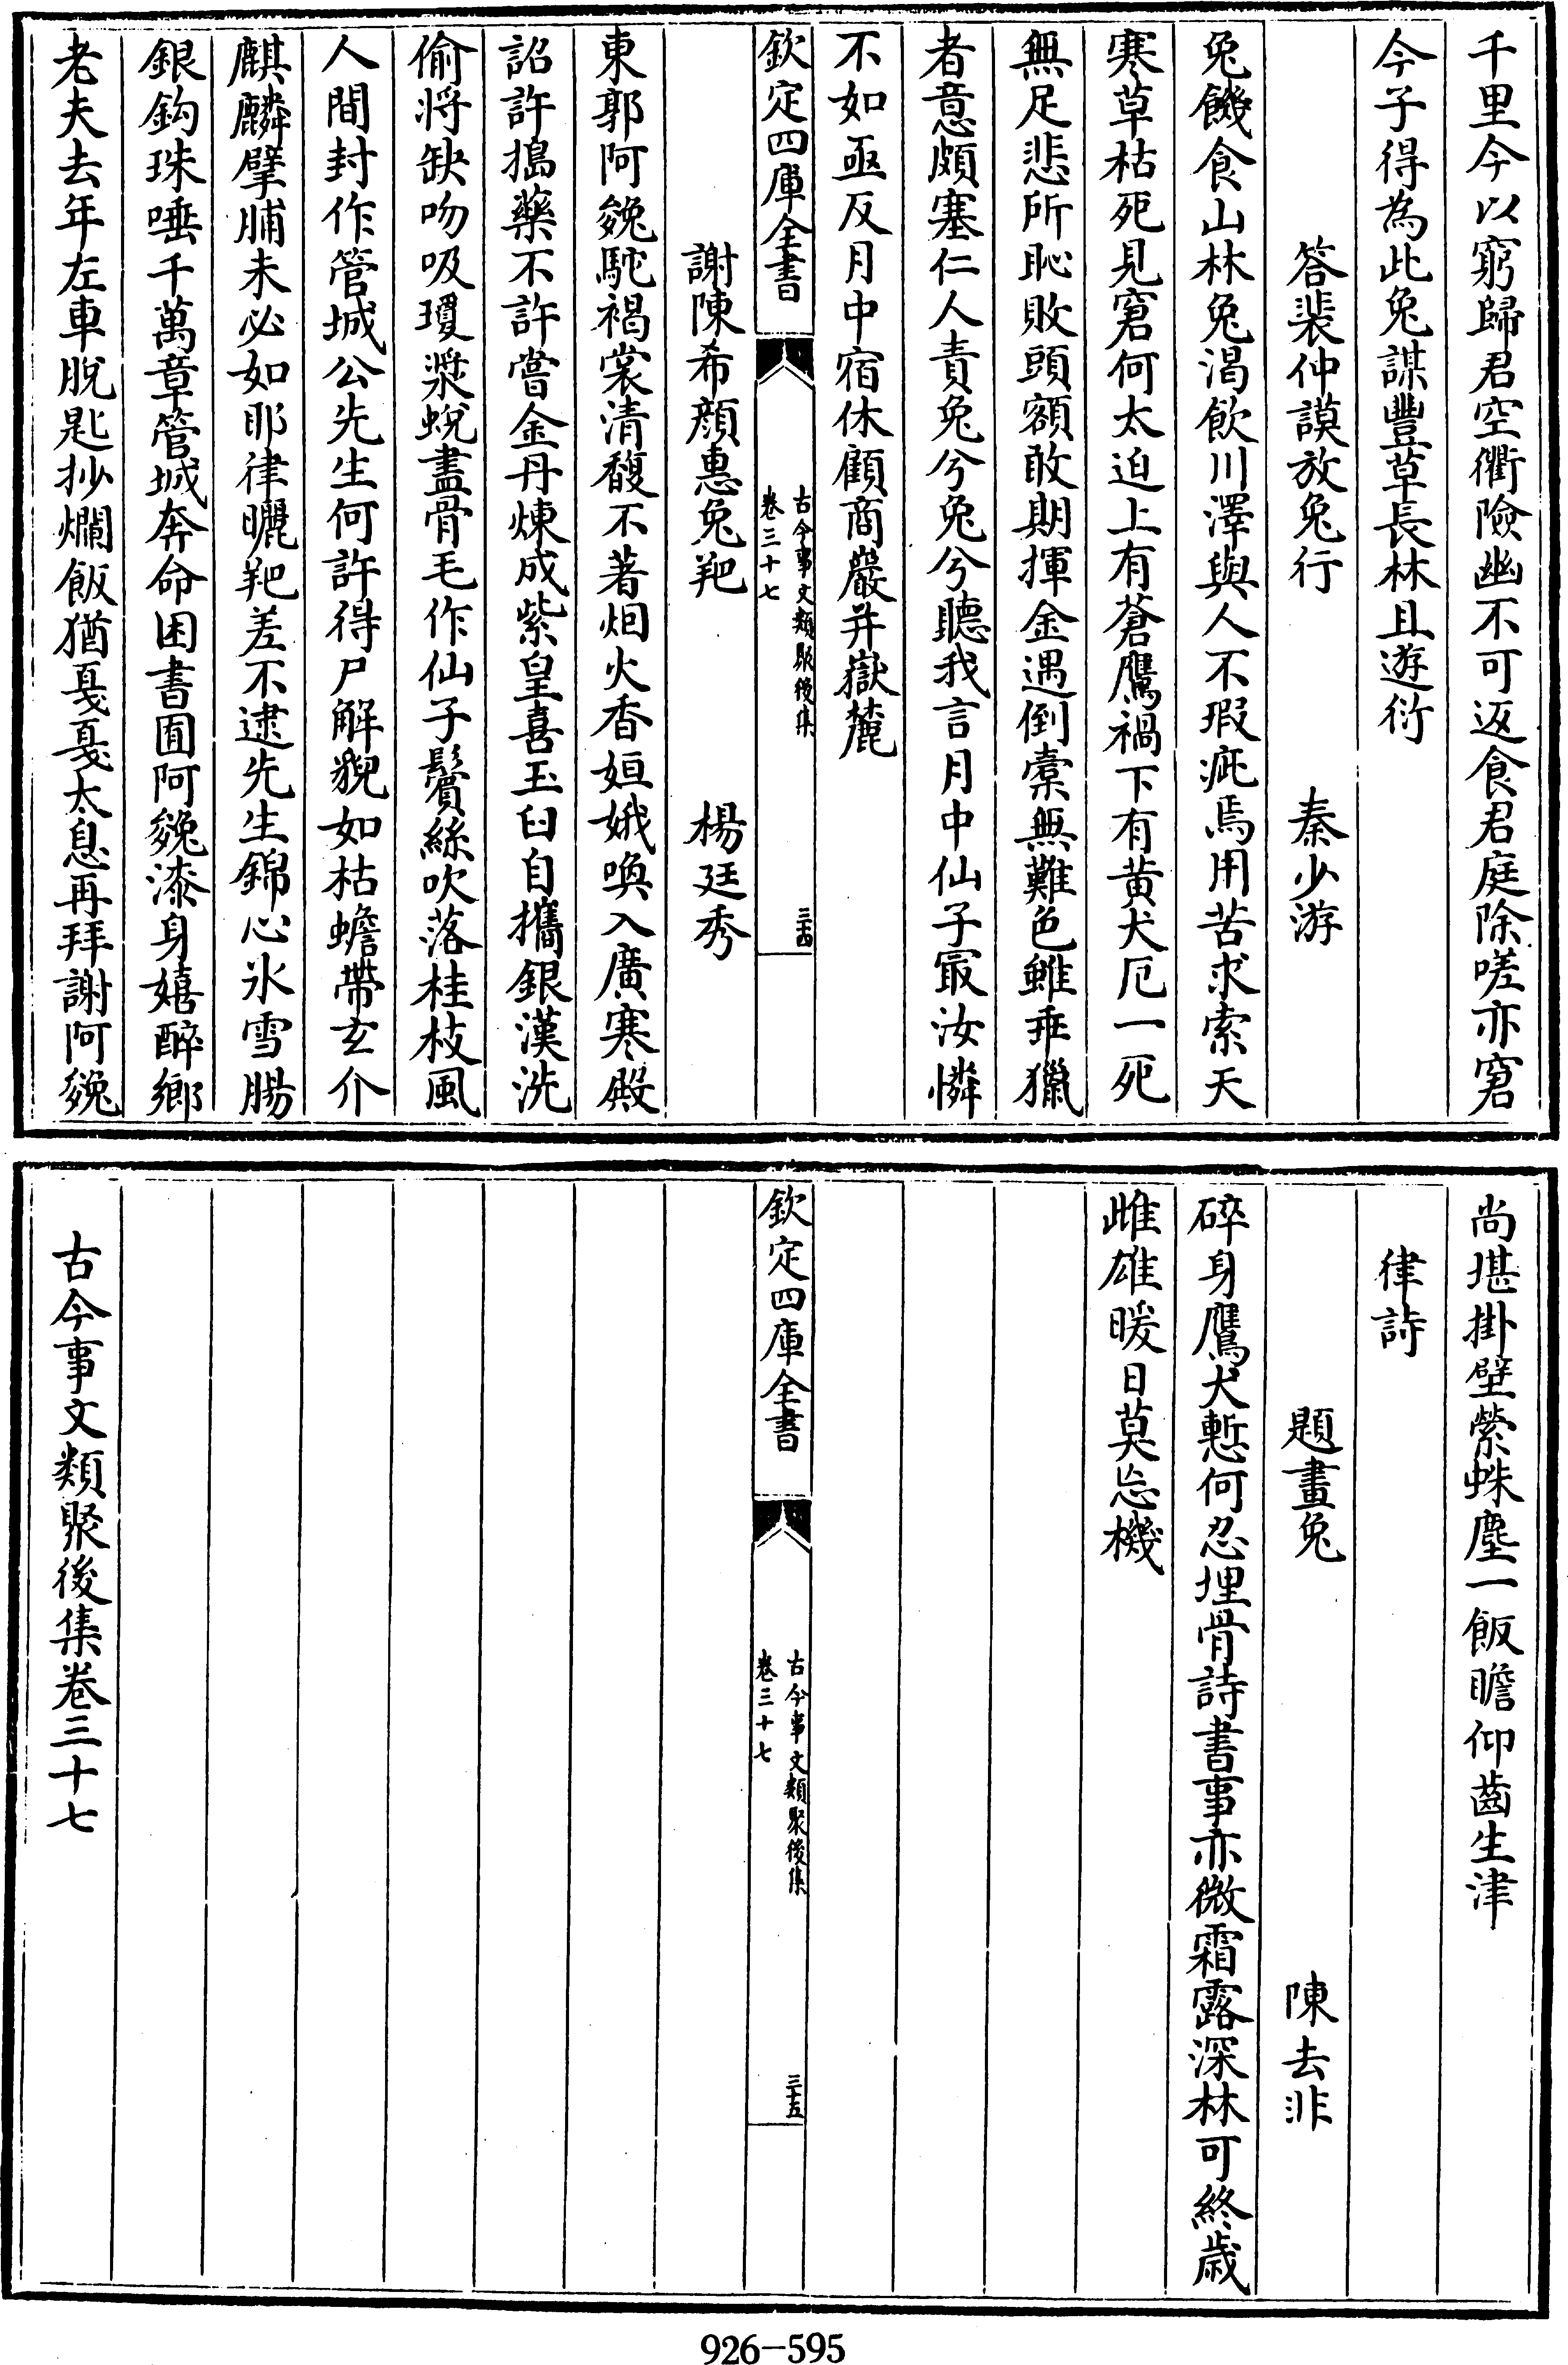 千里今以窮歸君空衢險幽不可返食君庭除嗟亦窘
今子得為此兔謀豐草長林且遊衍
答裴仲謨放兔行　秦少游
兔饑食山林兔渴飲川澤與人不瑕疵焉用苦求索天
寒草枯死見窘何太迫上有蒼鷹禍下有黄犬厄一死
無足悲所恥敗頭額敢期揮金遇倒橐無難色雖乖獵
者意頗塞仁人責兔兮兔兮聽我言月中仙子㝡汝憐
不如亟反月中宿休顧商巖并嶽麓
欽定四庫全書
古今事文類聚後集
卷三十七
三十四
謝陳希顔惠兔羓　楊廷秀
東郭阿㕙馳褐裳清馥不著烟火香姮娥喚入廣寒殿
詔許搗藥不許嘗金丹煉成紫皇喜玉臼自攜銀漢洗
偷将缺吻吸瓊漿蛻盡骨毛作仙子鬢絲吹落桂枝風
人間封作管城公先生何許得尸解貌如枯蟾帶玄介
麒麟擘脯未必如耶律曬羓差不逮先生錦心氷雪腸
銀鈎珠唾千萬章管城奔命困書圃阿㕙漆身嬉醉鄉
老夫去年左車脫匙抄爛飯猶戛戛太息再拜謝阿㕙
尚堪掛壁縈蛛塵一飯瞻仰齒生津
律詩
題畫兔　陳去非
碎身鷹犬慙何忍埋骨詩書事亦微霜露深林可終歲
雌雄暖日莫忘機
欽定四庫全書
古今事文類聚後集
卷三十七
三十五
古今事文類聚後集卷三十七
926-595